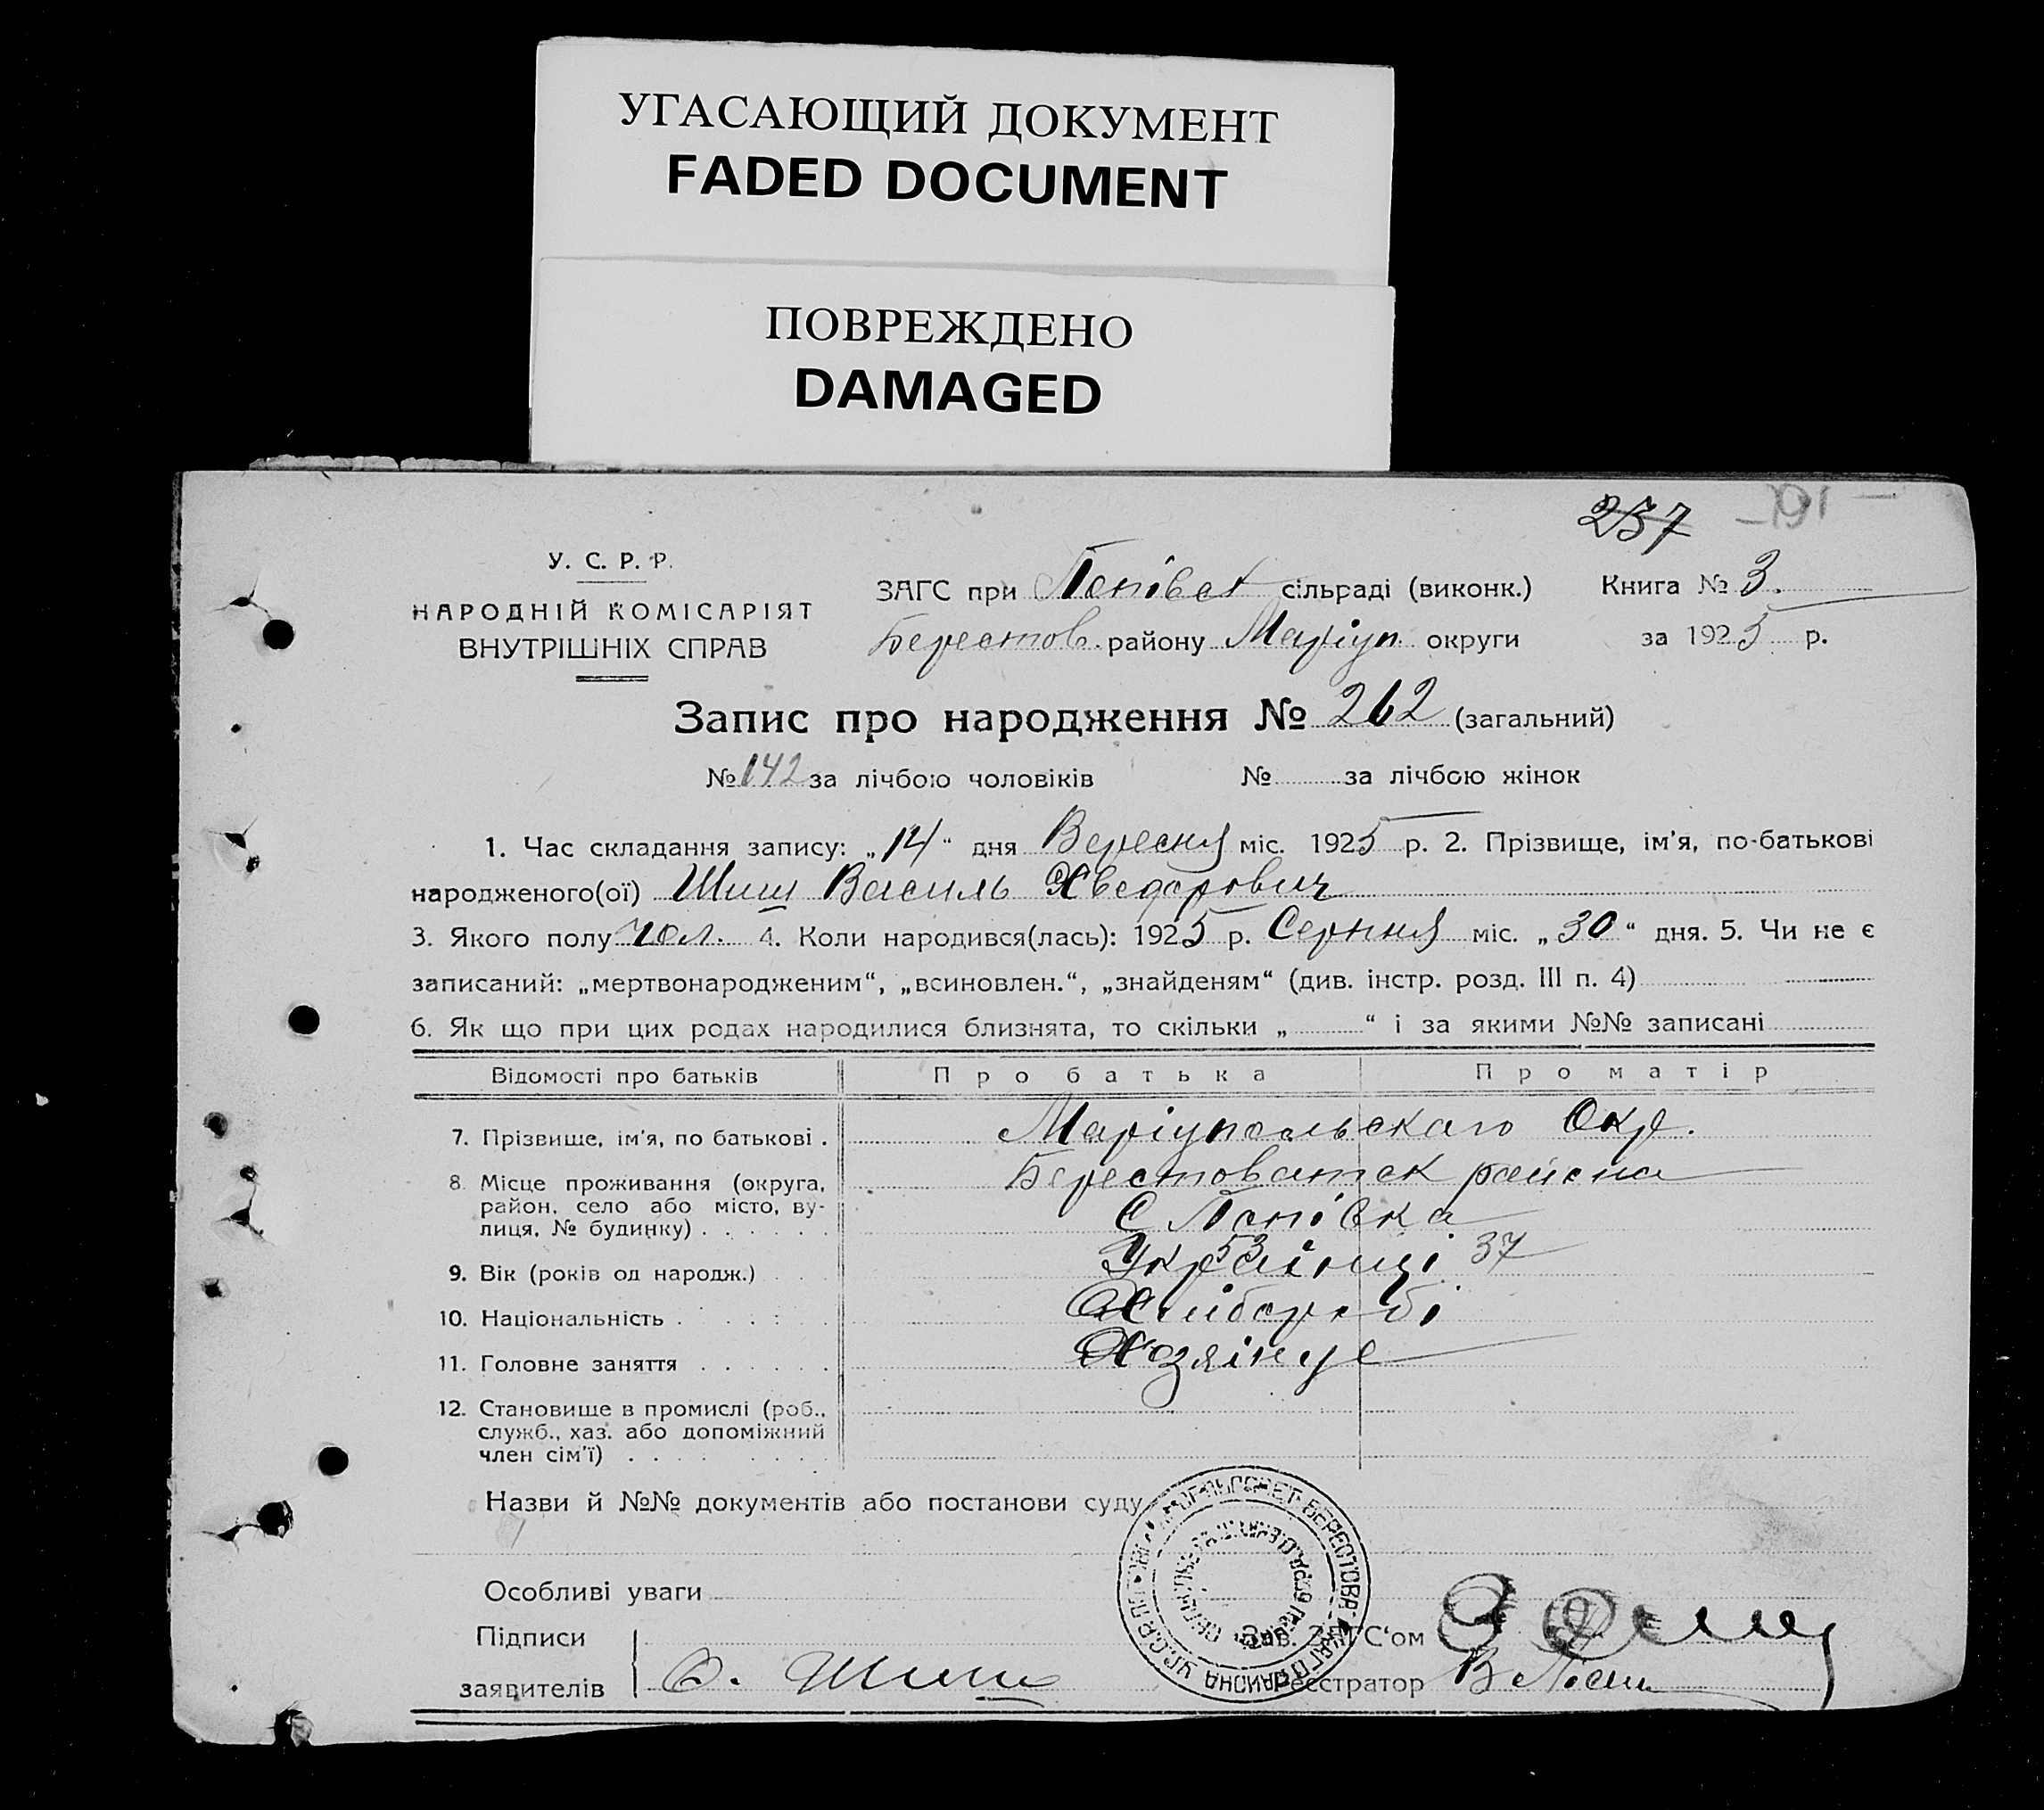 УГАСАЮЩИЙ ДОКУМЕНТ
FADED DOCUMENT
ПОВРЕЖДЕНО
DAMAGED
237
У. С. Р. Р.
НАРОДНІЙ КОМІСАРІЯТ
ВНУТРІШНІХ СПРАВ
ЗАГС при Попівск сільраді (виконк.) Книга № 3.
Берестов. району Маріуп. округи за 1925 р.
Запис про народження № 262 (загальний)
№ 142 за лічбою чоловіків № за лічбою жінок
1. Час складання запису: „14“ дня Вересня міс. 1925 р. 2. Прізвище, ім’я, по-батькові
народженого(ої) Шиш Василь Хведорович
3. Якого полу чол. 4. Коли народився(лась): 1925 р. Серпня міс. „30“ дня. 5. Чи не є
записаний: „мертвонародженим“, „всиновлен.“, „знайденям“ (див. інстр. розд. III п. 4)
6. Як що при цих родах народилися близнята, то скільки „ “ і за якими №№ записані
Відомості про батьків Про батька Про матір
7. Прізвише, ім’я, по батькові . Маріупольскаго Окр.
8. Місце проживання (округа, Берестоватск района
район, село або місто, ву-
лиця, № будинку) . . . . . . С Попівка
9. Вік (років од народж.) . . . 53 37
Українці
10. Національність . . . . . Хлібороби
11. Головне заняття . . . . . . Хозяінує
12. Становище в промислі (роб.,
служб., хаз. або допоміжний
член сім’ї) . . . . . . . .
Назви й №№ документів або постанови суду
Особливі уваги
Підписи
заявителів Ф. Шиш
Зав. ЗАГС‘ом
Реєстратор В